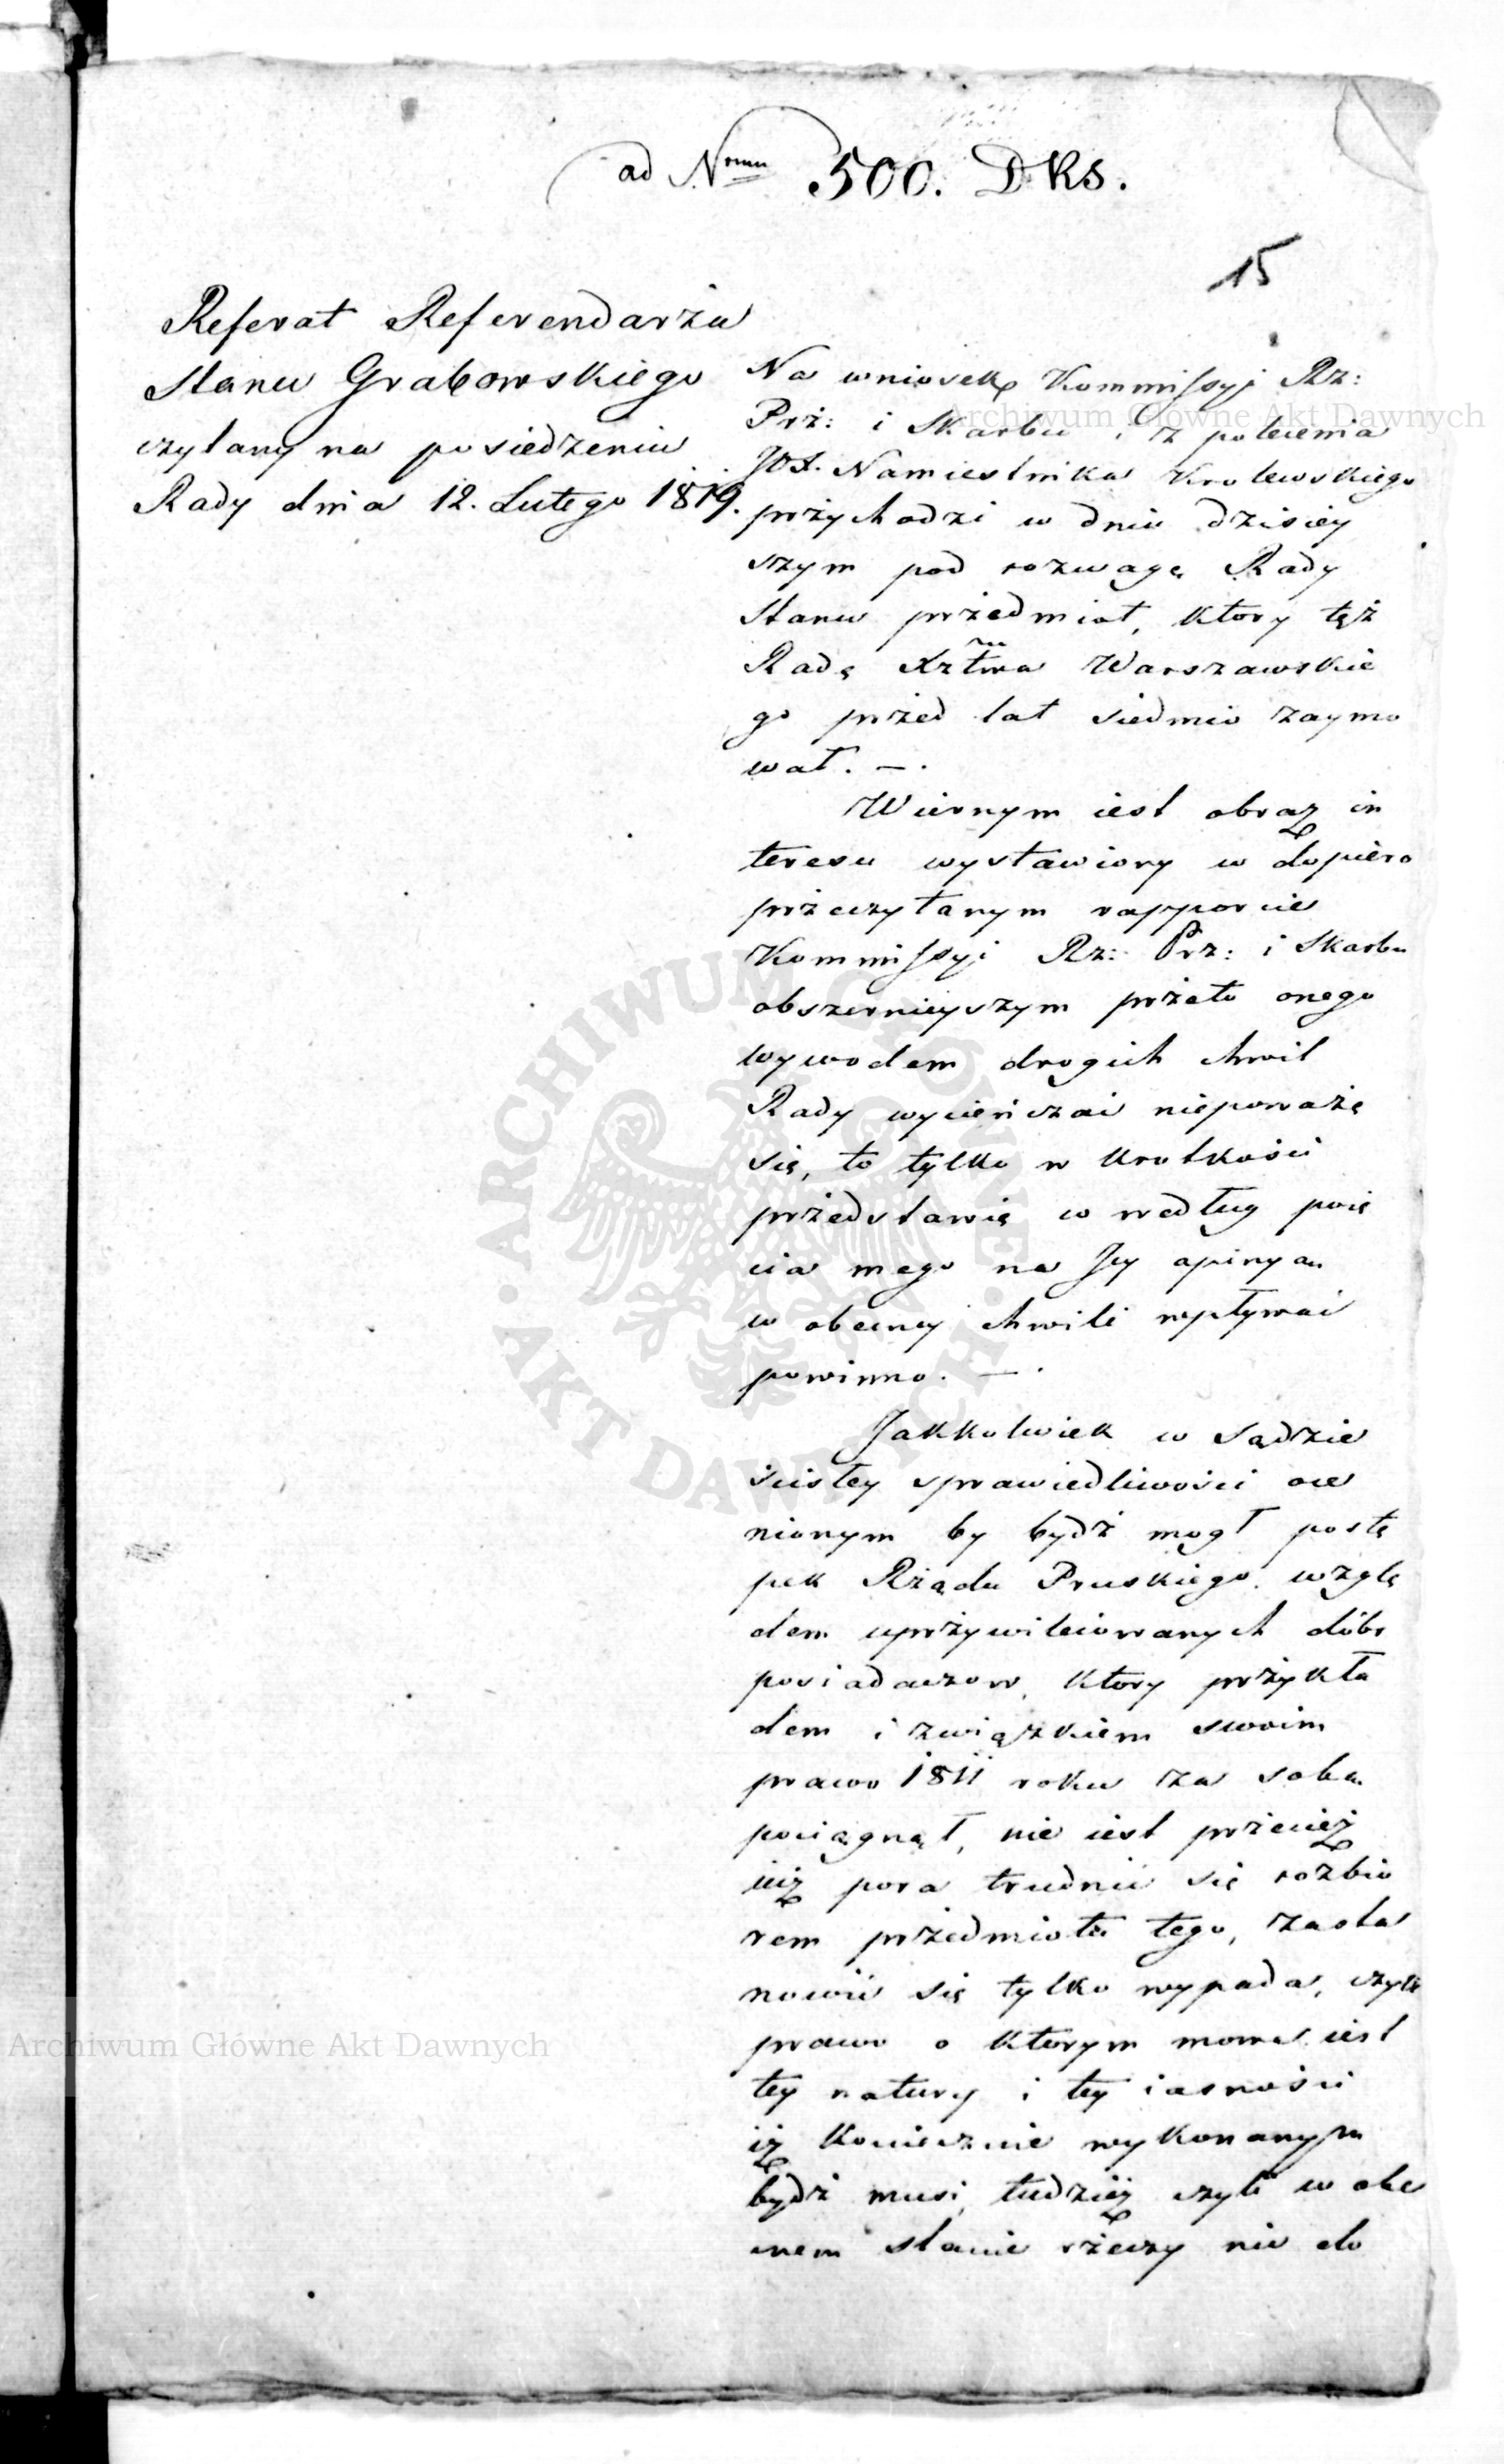 ad Nrum 500. DKS.
15
Referat Referendarza
Stanu Grabowskiego
czytany na posiedzeniu
Rady dnia 12. Lutego 1819.
Na wniosek Kommissyi Rz:
Prz: i Skarbu i z polecenia
JOX. Namiestnika Krolewskiego
przychodzi w dniu dzisiey
szym pod rozwagę Rady
Stanu przedmiot, ktory tęż
Radę Xztwa Warszawskie
go przed lat siedmio zaymo
wał. —.
Wiernym iest obraz in
teresu wystawiony w dopiero
przeczytanym rapporcie
Kommissyi Rz: Prz: i Skarbu
obszernieyszym przeto onego
wywodem drogich chwil
Rady wycieńczać nieponażę
się, to tylko w krotkości
przedstawię co według poię
cia mego na Jey opinyą
w obecney chwili wpływać
powinno. —.
Jakkolwiek w sądzie
ścisłey sprawiedliwości oce
nionym by bydź mogł postę
pek Rządu Pruskiego wzglę
dem uprzywileiowanych dóbr
posiadaczow, ktory przykła
dem i związkiem swoim
prawo 1811 roku za sobą
pociągnął, nie iest przecież
iuż pora trudnić się rozbio
rem przedmiotu tego, zasta
nowić się tylko wypada, czyli
prawo o ktorym mowa iest
tey natury i tey iasności
iż koniecznie wykonanym
bydź musi, tudzież czyli w obe
cnem stanie rzeczy nie do
Archiwum Główne Akt Dawnych
Archiwum Główne Akt Dawnych
ARCHIWUM GŁÓWNE AKT DAWNYCH